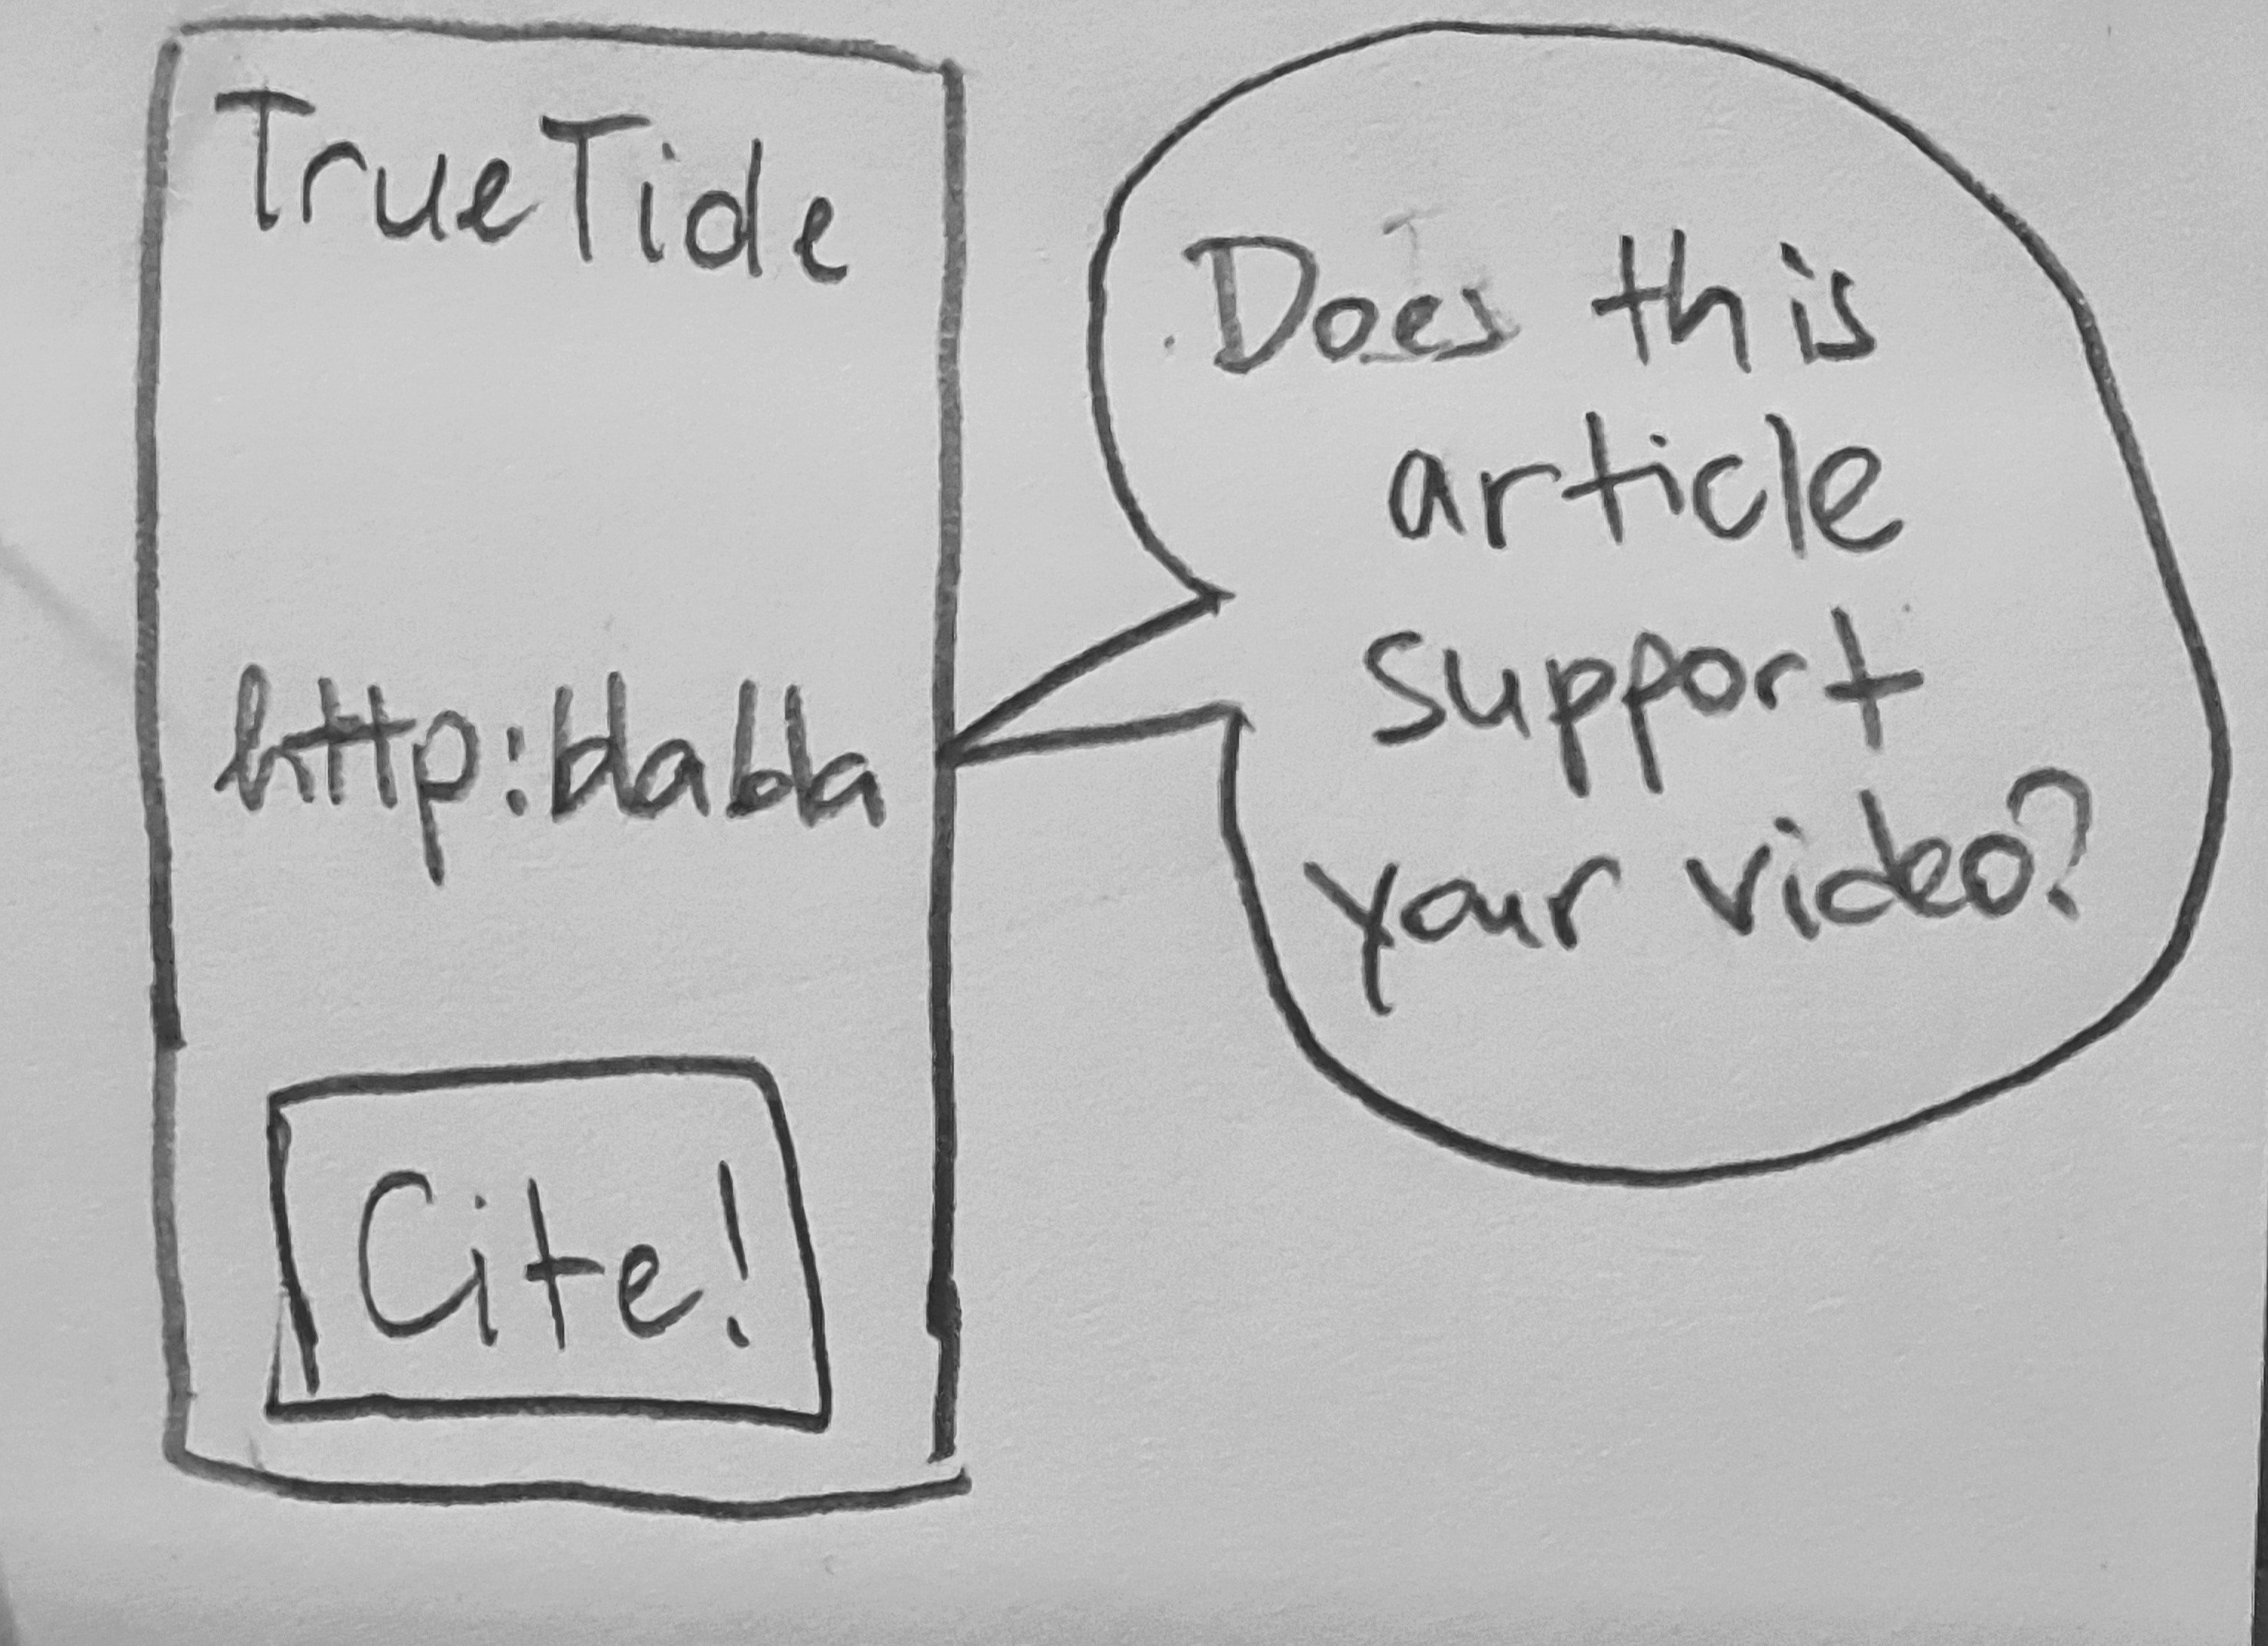 TrueTide
http:blabla
Cite!
Does this
article
support
your video?